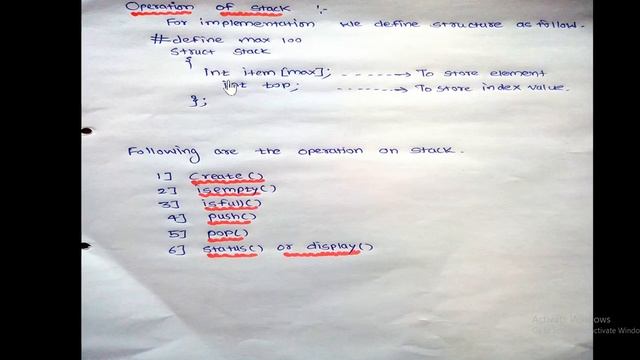 Operation of stack :-
For implementation we define structure as follow.
#define max 100
struct stack
{
int item[max]; -----> To store element
int top; -----> To store index value.
};
Following are the operation on stack.
1] create()
2] isempty()
3] isfull()
4] push()
5] pop()
6] status() or display()
Activate Windows